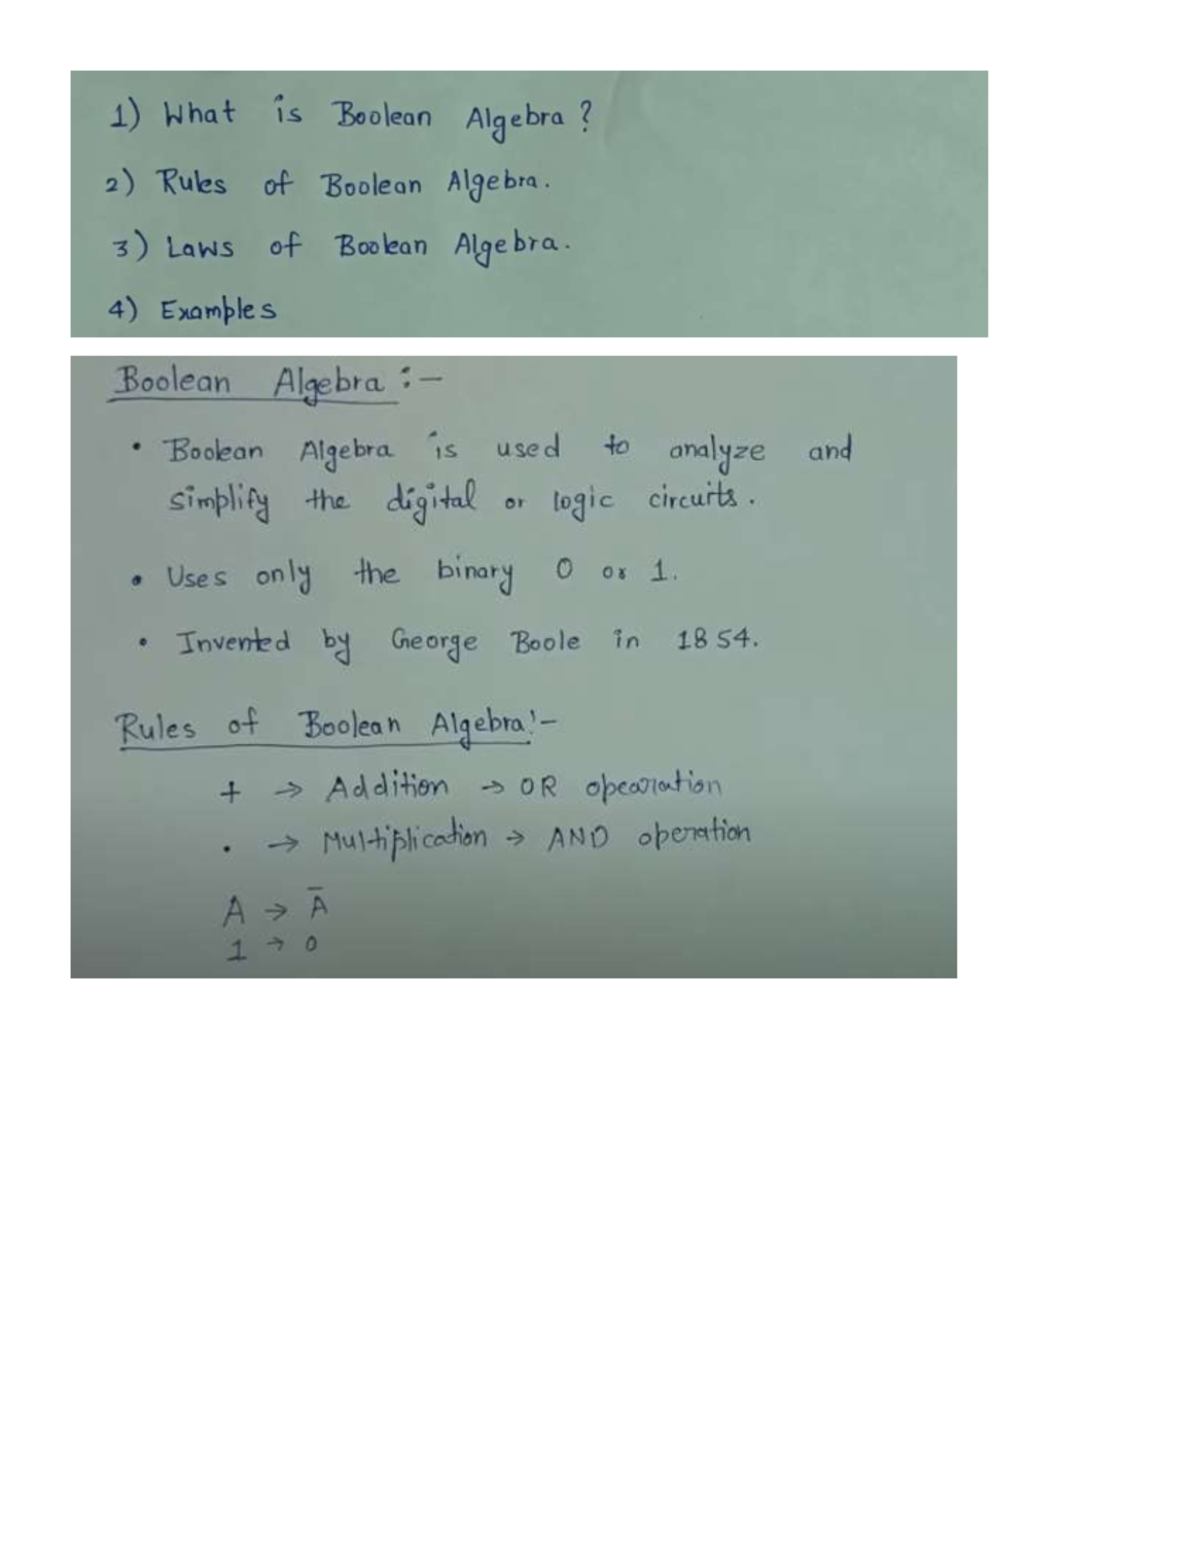 1) What is Boolean Algebra ?
2) Rules of Boolean Algebra.
3) Laws of Boolean Algebra.
4) Examples
Boolean Algebra :-
• Boolean Algebra is used to analyze and
simplify the digital or logic circuits.
• Uses only the binary 0 or 1.
• Invented by George Boole in 1854.
Rules of Boolean Algebra:-
+ → Addition → OR opearation
. → Multiplication → AND operation
A → A̅
1 → 0